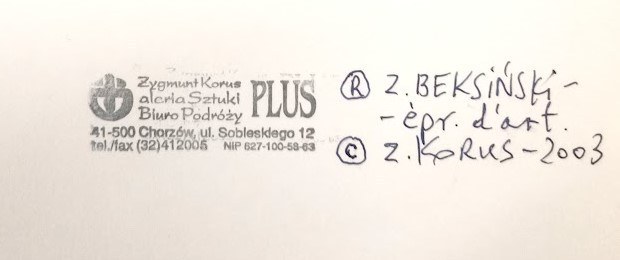 Zygmunt Korus
aleria Sztuki
Biuro Podróży
PLUS
41-500 Chorzów, ul. Sobieskiego 12
tel./fax (32)412005 NIP 627-100-58-63
Ⓡ Z. BEKSIŃSKI -
- èpr. d'art.
© Z. KORUS - 2003